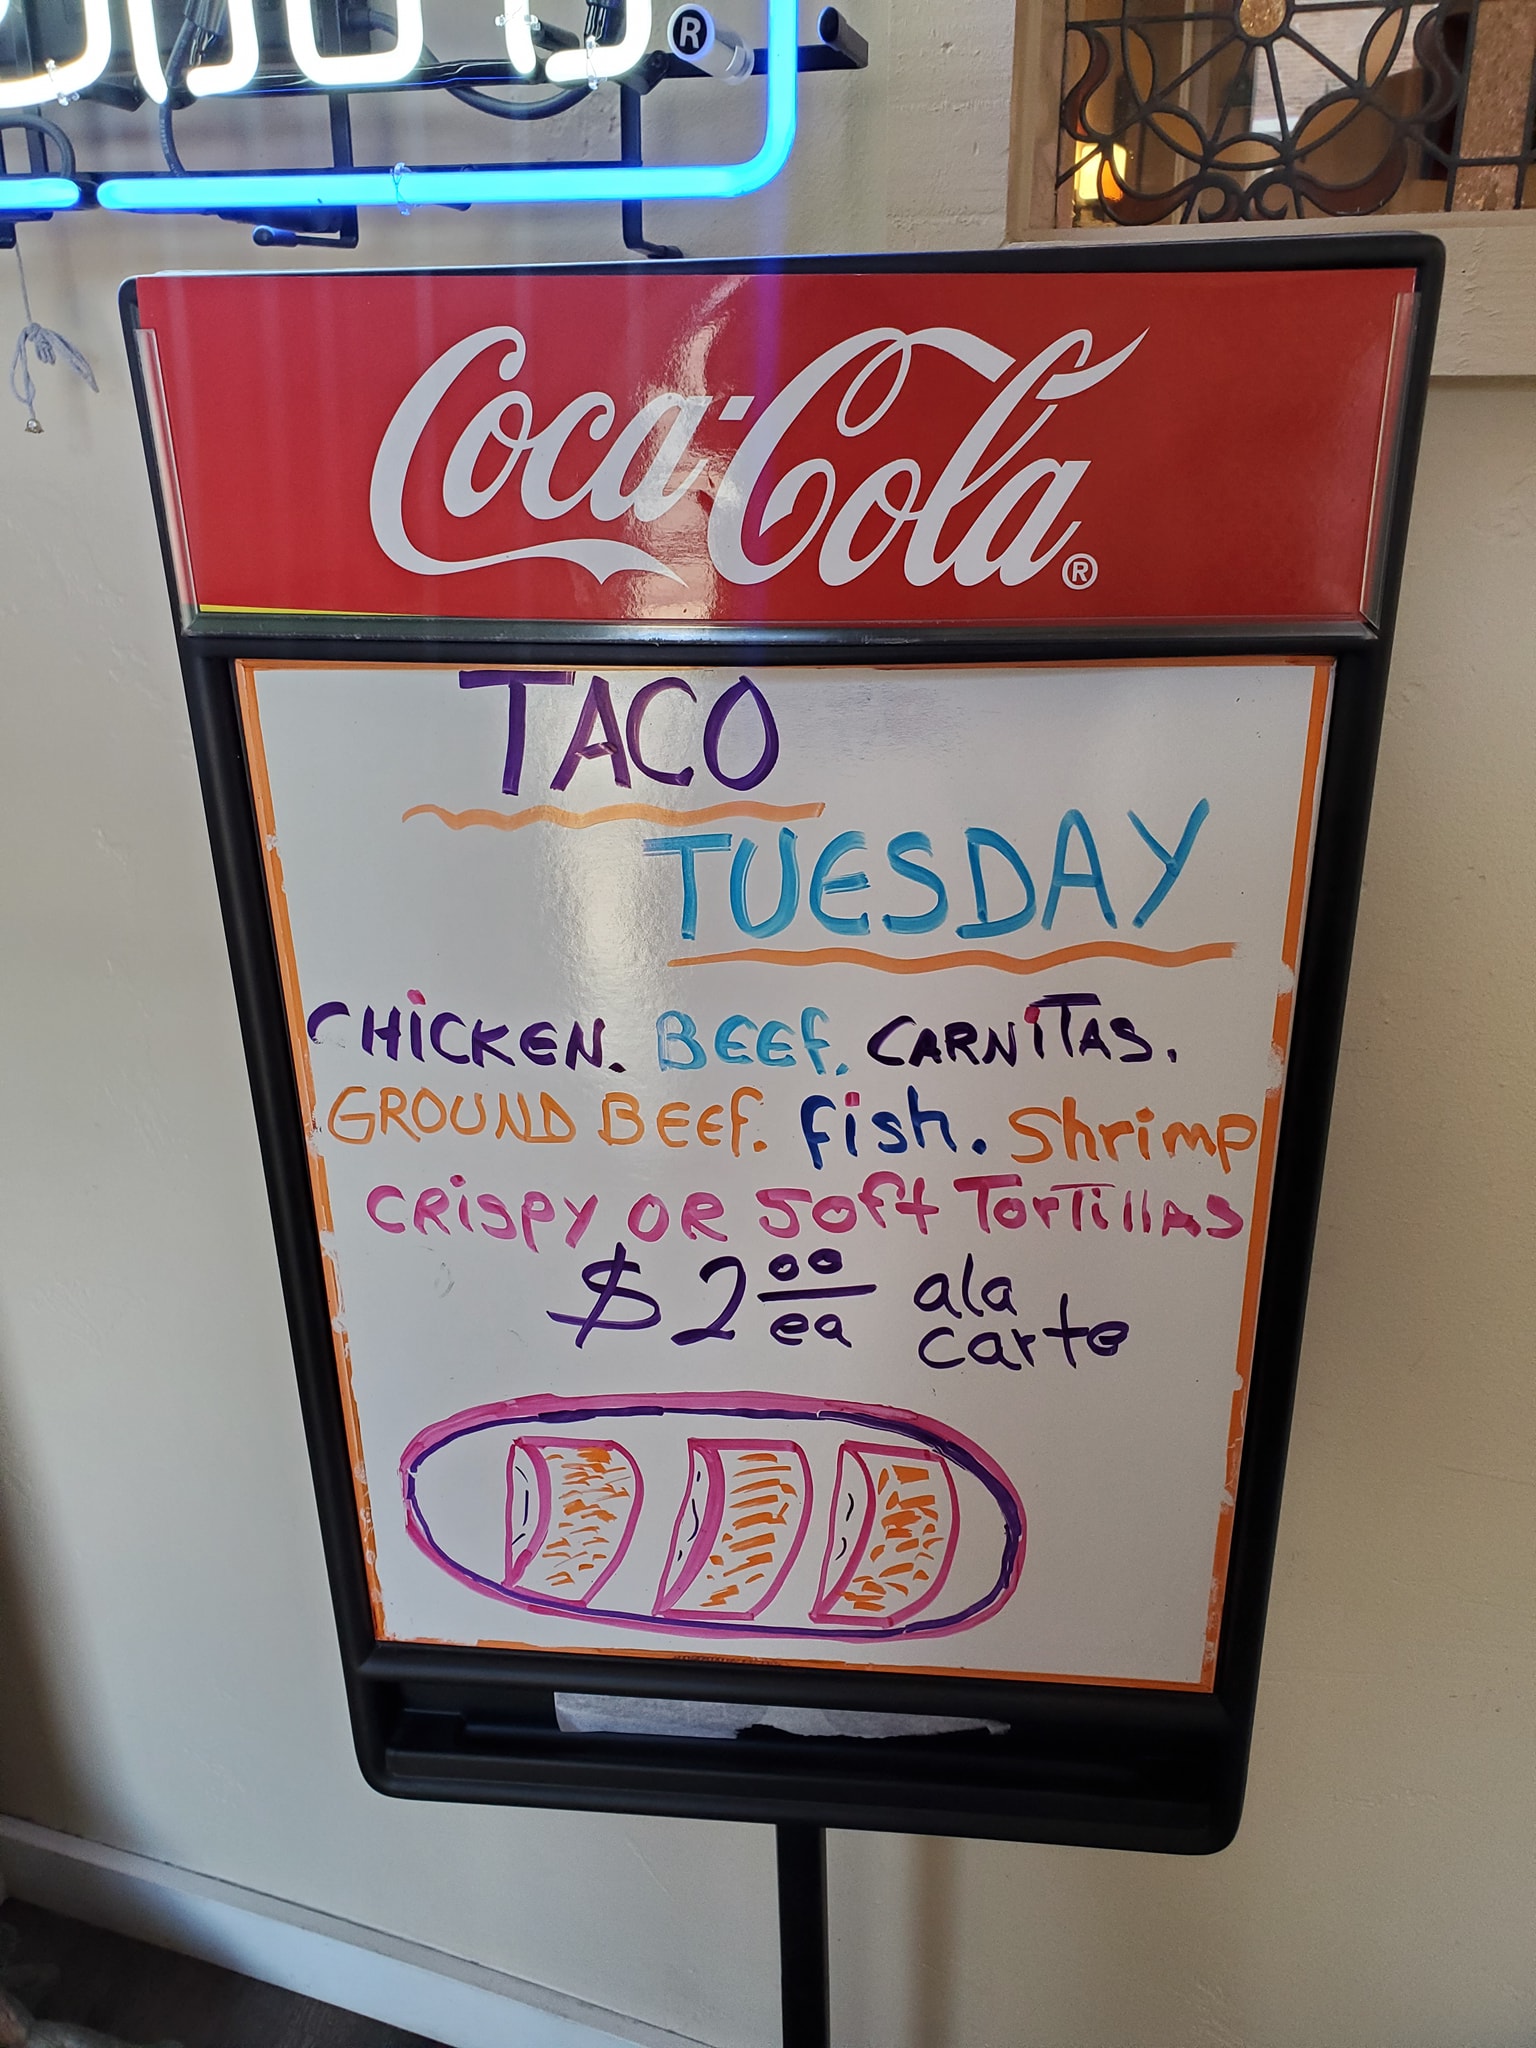 ®
Coca-Cola®
TACO
TUESDAY
CHiCKEN. BEEf. CARNiTAS.
GROUND BEEf. fish. Shrimp
CRispy OR Soft TorTillAS
$2.00 ea ala carte